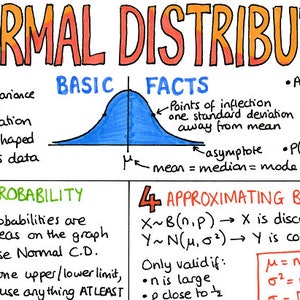 NORMAL DISTRIBU
BASIC FACTS
Points of inflection
one standard deviation
away from mean
asymptote
μ
mean = median = mode
ROBABILITY
obabilities are
eas on the graph
se Normal C.D.
one upper/lower limit,
use anything ATLEAST
4 APPROXIMATING B
X~B(n,p) → X is disc
Y~N(μ,σ²) → Y is co
Only valid if:
• n is large
• p close to ½
μ = n
σ² =
σ =
ariance
ation
haped
s data